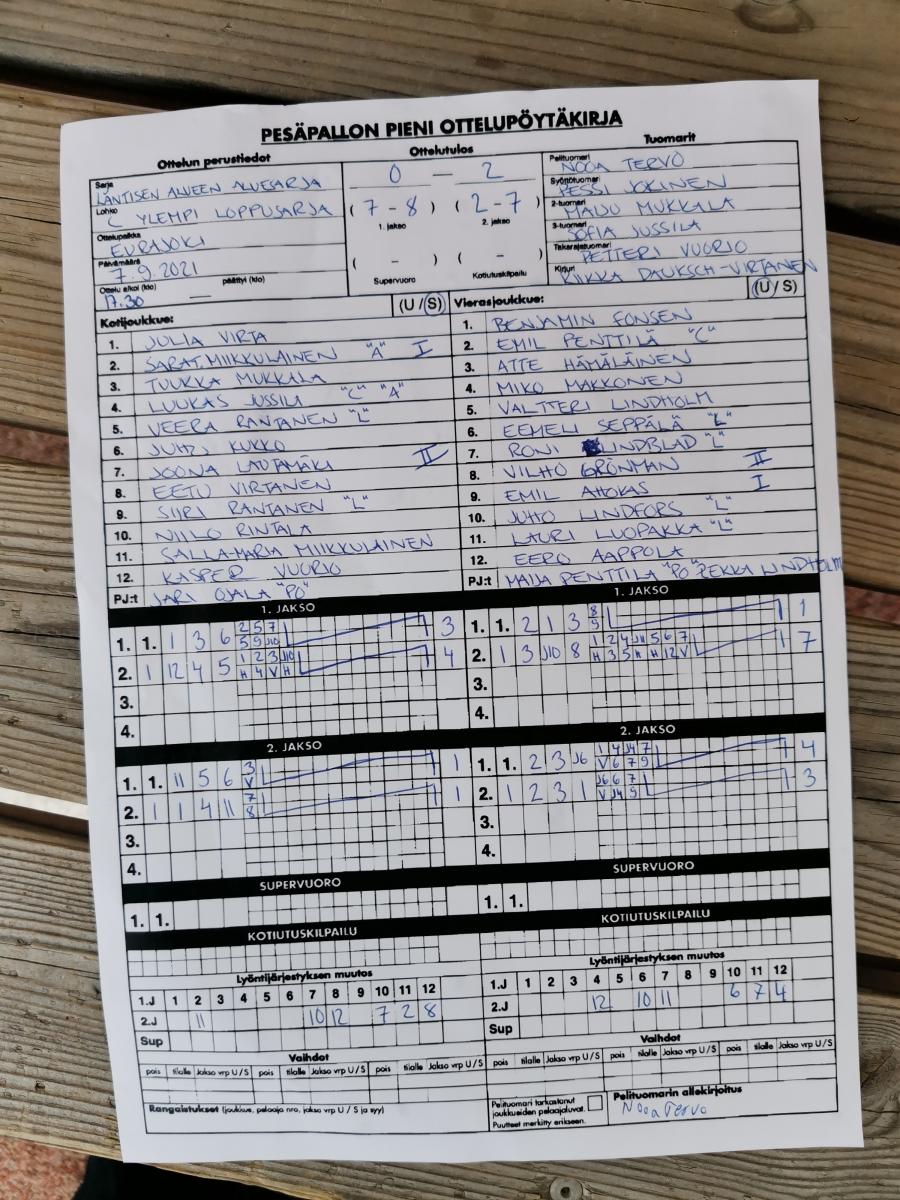 PESÄPALLON PIENI OTTELUPÖYTÄKIRJA
Ottelun perustiedot
Sarja
LÄNTISEN ALUEEN ALUESARJA
Lohko
C YLEMPI LOPPUSARJA
Ottelupaikka
EURAJOKI
Päivämäärä
7.9.2021
Ottelu alkoi (klo) päättyi (klo)
17.30 —
Ottelutulos
0 — 2
( 7 - 8 ) ( 2 - 7 )
1. jakso 2. jakso
( - ) ( - )
Supervuoro Kotiutuskilpailu
Tuomarit
Pelituomari
NOOA TERVO
Syöttötuomari
PESSI JOKINEN
2-tuomari
MAIJU MUKKALA
3-tuomari
SOFIA JUSSILA
Takarajatuomari
PETTERI VUORIO
Kirjuri
RIIKKA DAUKSCH-VIRTANEN
Kotijoukkue: (U / S)
1. JULIA VIRTA
2. SARAT. MIIKKULAINEN "A" I
3. TUUKKA MUKKALA
4. LUUKAS JUSSILA "C" "A"
5. VEERA RANTANEN "L"
6. JUHO KUKKO
7. JOONA LAUTAMÄKI II
8. EETU VIRTANEN
9. SIIRI RANTANEN "L"
10. NIILO RINTALA
11. SALLA-MARIA MIIKKULAINEN
12. KASPER VUORIO
PJ:t JARI OJALA "PO"
Vierasjoukkue: (U / S)
1. BENJAMIN FONSEN
2. EMIL PENTTILÄ "C"
3. ATTE HÄMÄLÄINEN
4. MIKO MAKKONEN
5. VALTTERI LINDHOLM
6. EEMELI SEPPÄLÄ "L"
7. RONI LINDBLAD "L"
8. VILHO GRÖNMAN II
9. EMIL AHOKAS I
10. JUHO LINDFORS "L"
11. LAURI LUOPAKKA "L"
12. EERO AAPPOLA
PJ:t MAIJA PENTTILÄ "PO" PEKKA LINDHOLM
1. JAKSO
1. 1. 1 3 6 2 5 7 3
5 9 J10
2. 1 12 4 5 1 2 3 J10 4
H 4 V H
3.
4.
1. JAKSO
1. 1. 2 1 3 8 1
9
2. 1 3 J10 8 1 2 4 J11 5 6 7 7
H 3 5 H H 12 V
3.
4.
2. JAKSO
1. 1. 11 5 6 3 1
V
2. 1 1 4 11 7 1
8
3.
4.
2. JAKSO
1. 1. 2 3 J6 1 4 J4 7 4
V 6 7 9
2. 1 2 3 1 J6 6 7 3
V J4 9
3.
4.
SUPERVUORO
1. 1.
SUPERVUORO
1. 1.
KOTIUTUSKILPAILU
KOTIUTUSKILPAILU
Lyöntijärjestyksen muutos
1.J 1 2 3 4 5 6 7 8 9 10 11 12
2.J 11 10 12 7 2 8
Sup
Lyöntijärjestyksen muutos
1.J 1 2 3 4 5 6 7 8 9 10 11 12
2.J 12 10 11 6 7 4
Sup
Vaihdot
pois tilalle Jakso vrp U / S pois tilalle Jakso vrp U / S pois tilalle Jakso vrp U / S
Vaihdot
pois tilalle Jakso vrp U / S pois tilalle Jakso vrp U / S pois tilalle Jakso vrp U / S
Rangaistukset (joukkue, pelaaja nro, jakso vrp U / S ja syy)
Pelituomari tarkastanut
joukkueiden pelaajaluvat.
Puutteet merkitty erikseen.
Pelituomarin allekirjoitus
Nooa Tervo